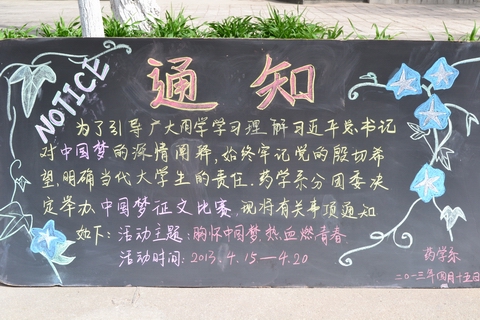 NOTICE
通知
为了引导广大同学学习理解习近平总书记
对中国梦的深情阐释，始终牢记党的殷切希
望，明确当代大学生的责任．药学系分团委决
定举办中国梦征文比赛，现将有关事项通知
如下：活动主题：胸怀中国梦，热血燃青春
活动时间：2013.4.15—4.20
药学系
二〇一三年四月十五日